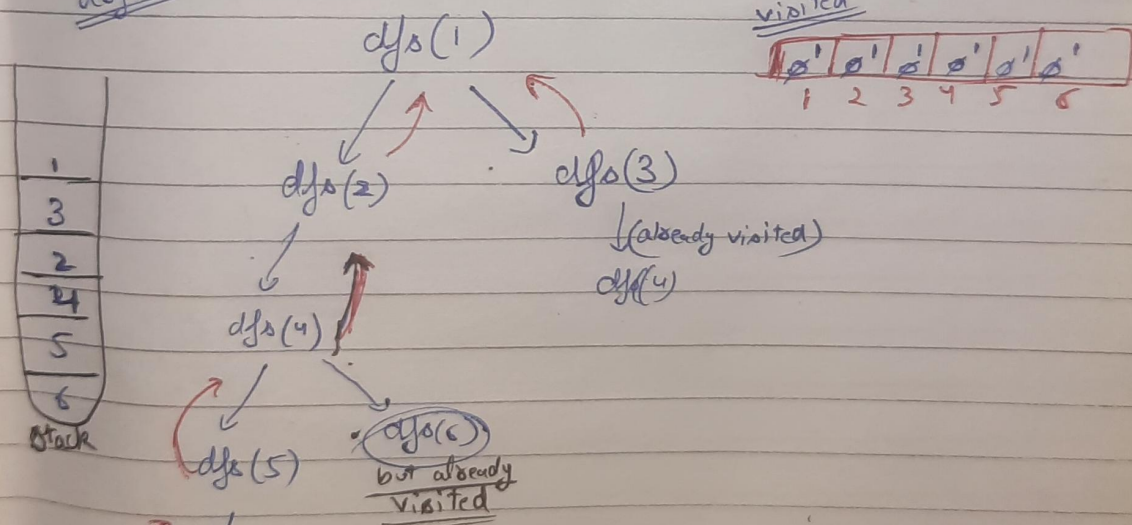 visited
dfs(1)
0 1 0 1 0 1 0 1 0 1 0 1
1 2 3 4 5 6
dfs(2)
dfs(3)
(already visited)
dfs(4)
dfs(4)
dfs(5)
dfs(6)
but already
visited
1
3
2
4
5
6
Stack